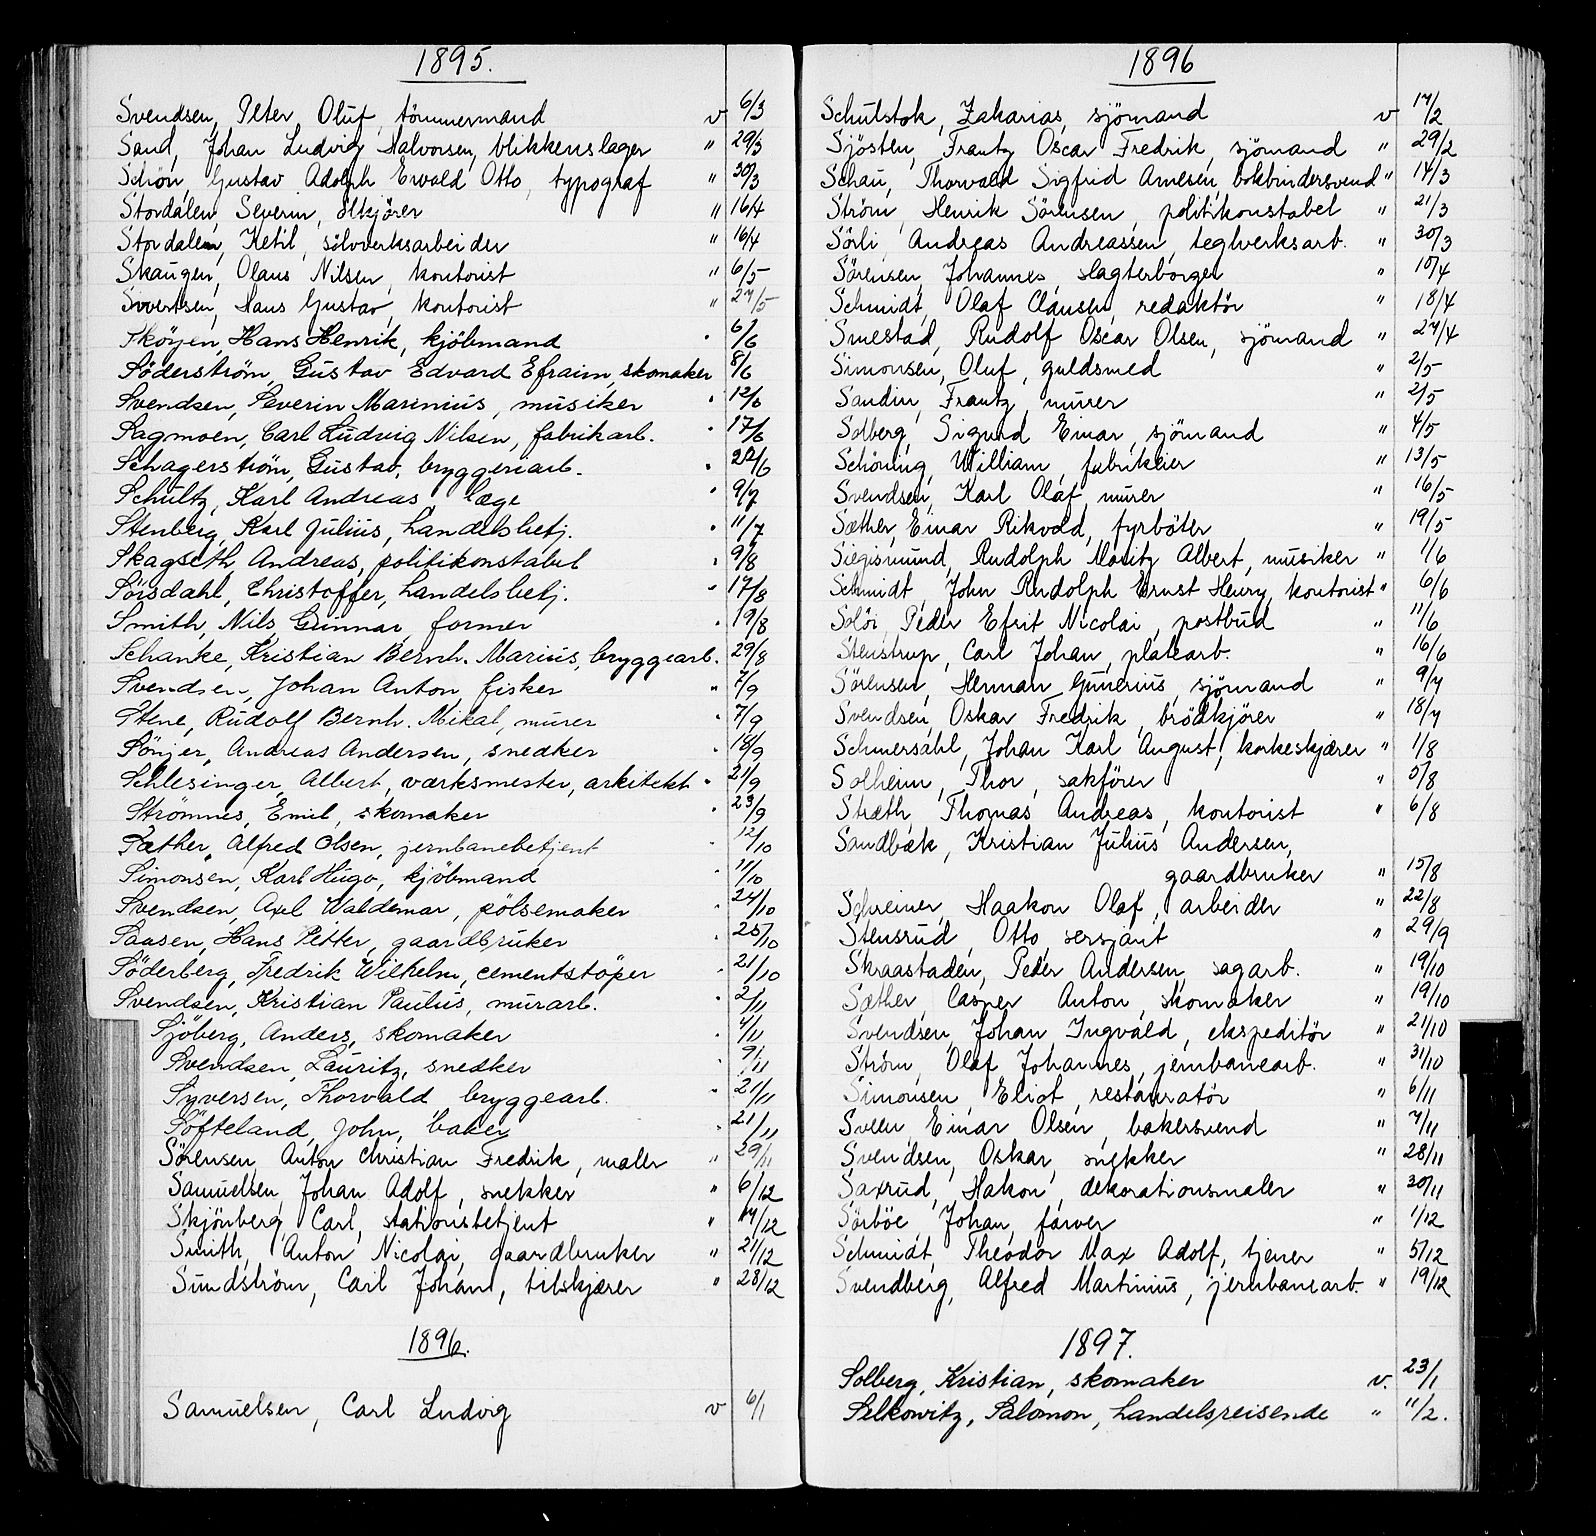 1895.
Svendsen, Peter Oluf, tömmermand v 6/3
Sand, Johan Ludvig Halvorsen, blikkenslager " 29/3
Schön, Gustav Adolph Ewald Otto, typograf " 30/3
Stordalen, Severin, ölkjörer " 16/4
Stordalen, Ketil, sölvverksarbeider " 16/4
Skaugen, Olaus Nilsen, kontorist " 6/5
Syvertsen, Hans Gustav, kontorist " 27/5
Sköyen, Hans Henrik, kjöbmand " 6/6
Söderström, Gustav Edvard Efraim, skomaker 8/6
Svendsen, Severin Marinius, musiker " 12/6
Sagmoen, Carl Ludvig Nilsen, fabrikarb. " 17/6
Schagerström, Gustav, bryggeriarb. " 22/6
Schultz, Karl Andreas, læge " 9/7
Stenberg, Karl Julius, handelsbetj. " 11/7
Skagseth, Andreas, politikonstabel " 9/8
Sörsdahl, Christoffer, handelsbetj. " 17/8
Smith, Nils Gunnar, former " 19/8
Schanke, Kristian Bernh. Marius, bryggearb. " 29/8
Svendsen, Johan Anton, fisker " 7/9
Stene, Rudolf Bernh. Mikal, murer " 7/9
Sönjer, Andreas Andersen, snedker " 18/9
Schlesinger, Albert, værksmester, arkitekt " 21/9
Strömnes, Emil, skomaker " 23/9
Sæther, Alfred Olsen, jernbanebetjent " 12/10
Simonsen, Karl Hugo, kjöbmand " 11/10
Svendsen, Axel Waldemar, pölsemaker " 24/10
Saasen, Hans Petter, gaardbruker " 25/10
Söderberg, Fredrik Wilhelm, cementstöper " 21/10
Svendsen, Kristian Paulus, murarb. " 2/11
Sjöberg, Anders, skomaker " 4/11
Svendsen, Lauritz, snedker " 9/11
Syversen, Thorvald, bryggearb. " 21/11
Söfteland, John, baker " 21/11
Sörensen, Anton Christian Fredrik, maler " 29/11
Samuelsen, Johan Adolf, snekker " 6/12
Skjönberg, Carl, stationsbetjent " 14/12
Smith, Anton Nicolai, gaardbruker " 21/12
Sundström, Carl Johan, tilskjærer " 28/12
1896.
Samuelsen, Carl Ludvig v 6/1
1896
Schulstok, Zakarias, sjömand v 17/2
Sjösten, Frantz Oscar Fredrik, sjömand " 29/2
Schau, Thorvald Sigfrid Arnesen, bokbindersvend " 14/3
Ström, Henrik Sörensen, politikonstabel " 21/3
Sörli, Andreas Andreassen, teglverksarb. " 30/3
Sörensen, Johannes, slagterborger " 10/4
Schmidt, Olaf Clausen, redaktör " 18/4
Smestad, Rudolf Oscar Olsen, sjömand " 27/4
Simonsen, Oluf, guldsmed " 2/5
Sandin, Frantz, murer " 2/5
Solberg, Sigurd Einar, sjömand " 4/5
Schöning, William, fabrikeier " 13/5
Svendsen, Karl Olaf, murer " 16/5
Sæther, Einar Rikvold, fyrböter " 19/5
Siegismund, Rudolph Moritz Albert, musiker " 1/6
Schmidt, John Rudolph Ernst Henry, kontorist " 6/6
Solöi, Peder Efrit Nicolai, postbud " 11/6
Stenstrup, Carl Johan, platearb. " 16/6
Sörensen, Herman Gunerius, sjömand " 9/7
Svendsen, Oskar Fredrik, brödkjörer " 18/7
Schmersahl, Johan Karl August, korkeskjærer " 1/8
Solheim, Thor, sakförer " 5/8
Stræth, Thomas Andreas, kontorist " 6/8
Sandbæk, Kristian Julius Andersen,
gaardbruker " 15/8
Schreiner, Haakon Olaf, arbeider " 22/8
Stensrud, Otto, sersjant " 29/9
Skraastaden, Peder Andersen, sagarb. " 19/10
Sæther, Casper Anton, skomaker " 19/10
Svendsen, Johan Ingvald, ekspeditör " 21/10
Ström, Olaf Johannes, jernbanearb. " 31/10
Simonsen, Eliot, restauratör " 6/11
Sveen, Einar Olsen, bakersvend " 7/11
Svendsen, Oskar, snekker " 28/11
Saxrud, Hakon, dekorationsmaler " 30/11
Sörböe, Johan, farver " 1/12
Schmidt, Theodor Max Adolf, tjener " 5/12
Svendberg, Alfred Martinius, jernbanearb. " 19/12
1897.
Solberg, Kristian, skomaker v. 23/1
Selkowitz, Salomon, handelsreisende " 11/2.